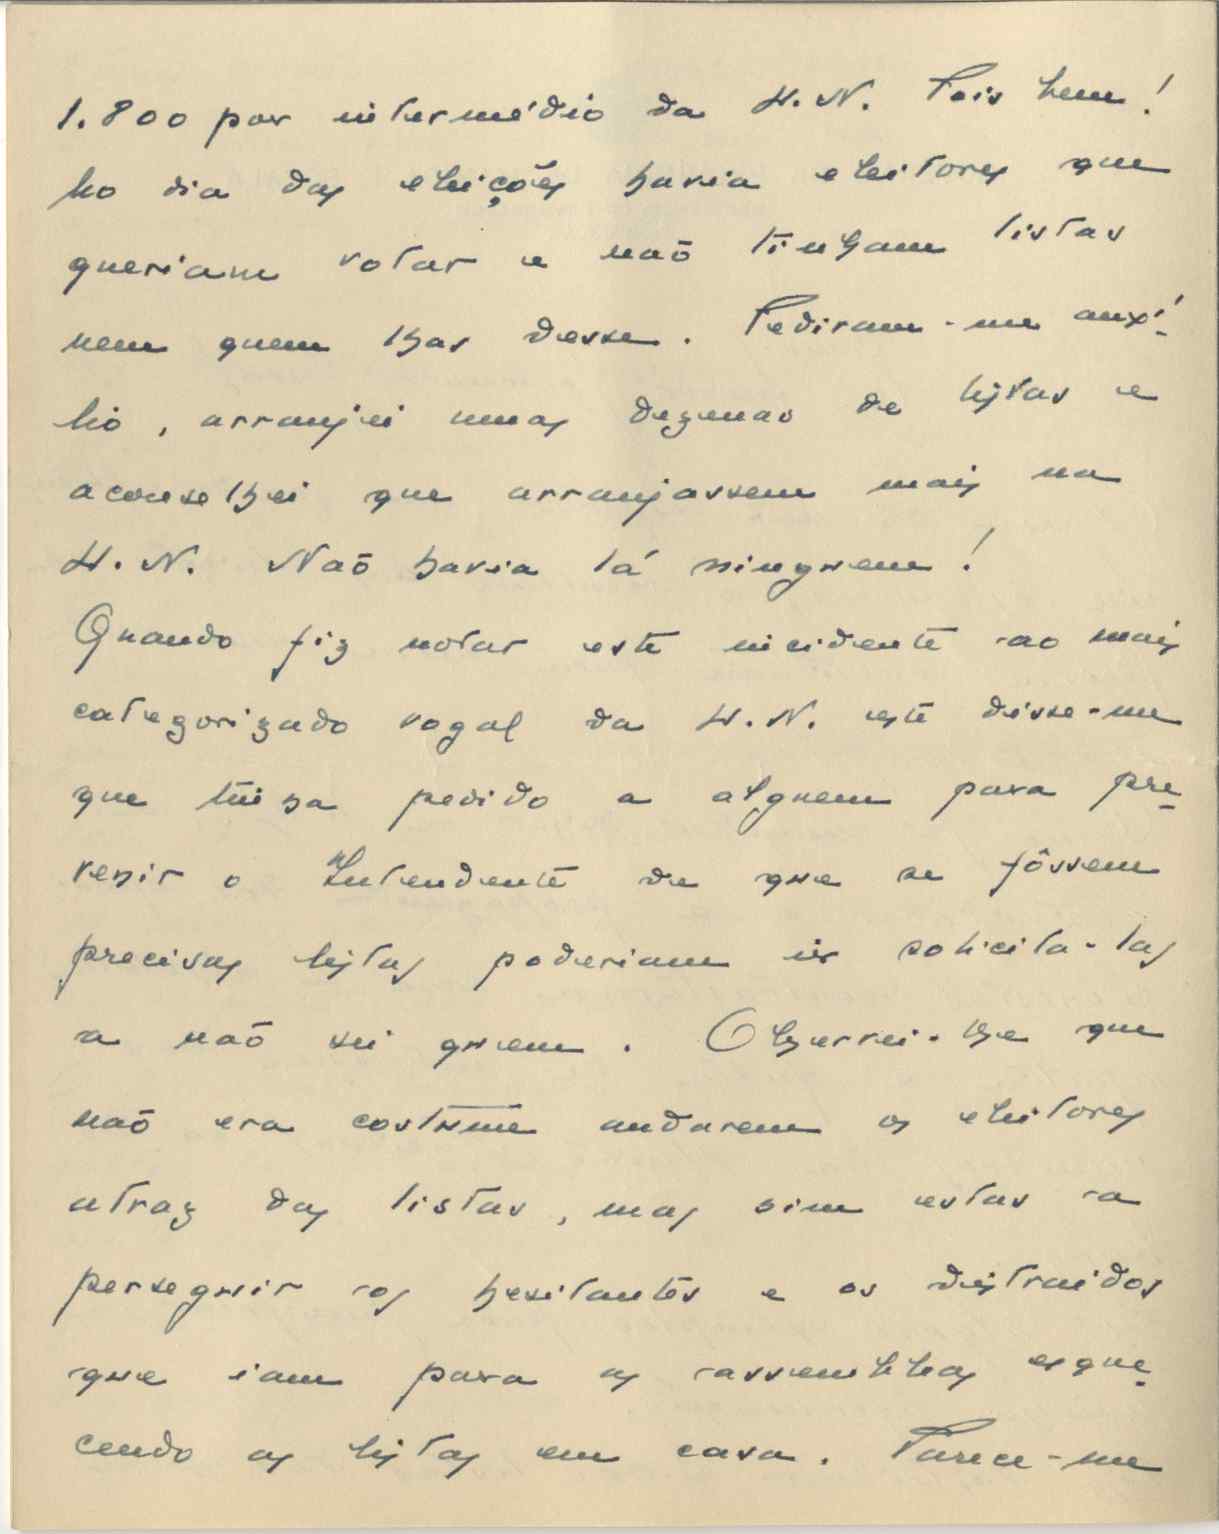 1.800 por intermédio da U.N. Pois bem!
No dia das eleições havia eleitores que
queriam votar e naõ tinham listas
nem quem lhas desse. Pediram-me auxí-
lio, arranjei umas dezenas de listas e
aconselhei que arranjassem mais na
U.N. Naõ havia lá ninguem!
Quando fiz notar este incidente ao mais
categorizado vogal da U.N. este disse-me
que tinha pedido a alguem para pre-
venir o Intendente de que se fôssem
precisas listas poderiam ir solicita-las
a naõ sei quem. Observei-lhe que
naõ era costume andarem os eleitores
atraz das listas, mas sim estas a
perseguir os hesitantes e os distraidos
que iam para as assembleas esque-
cendo as listas em casa. Parece-me